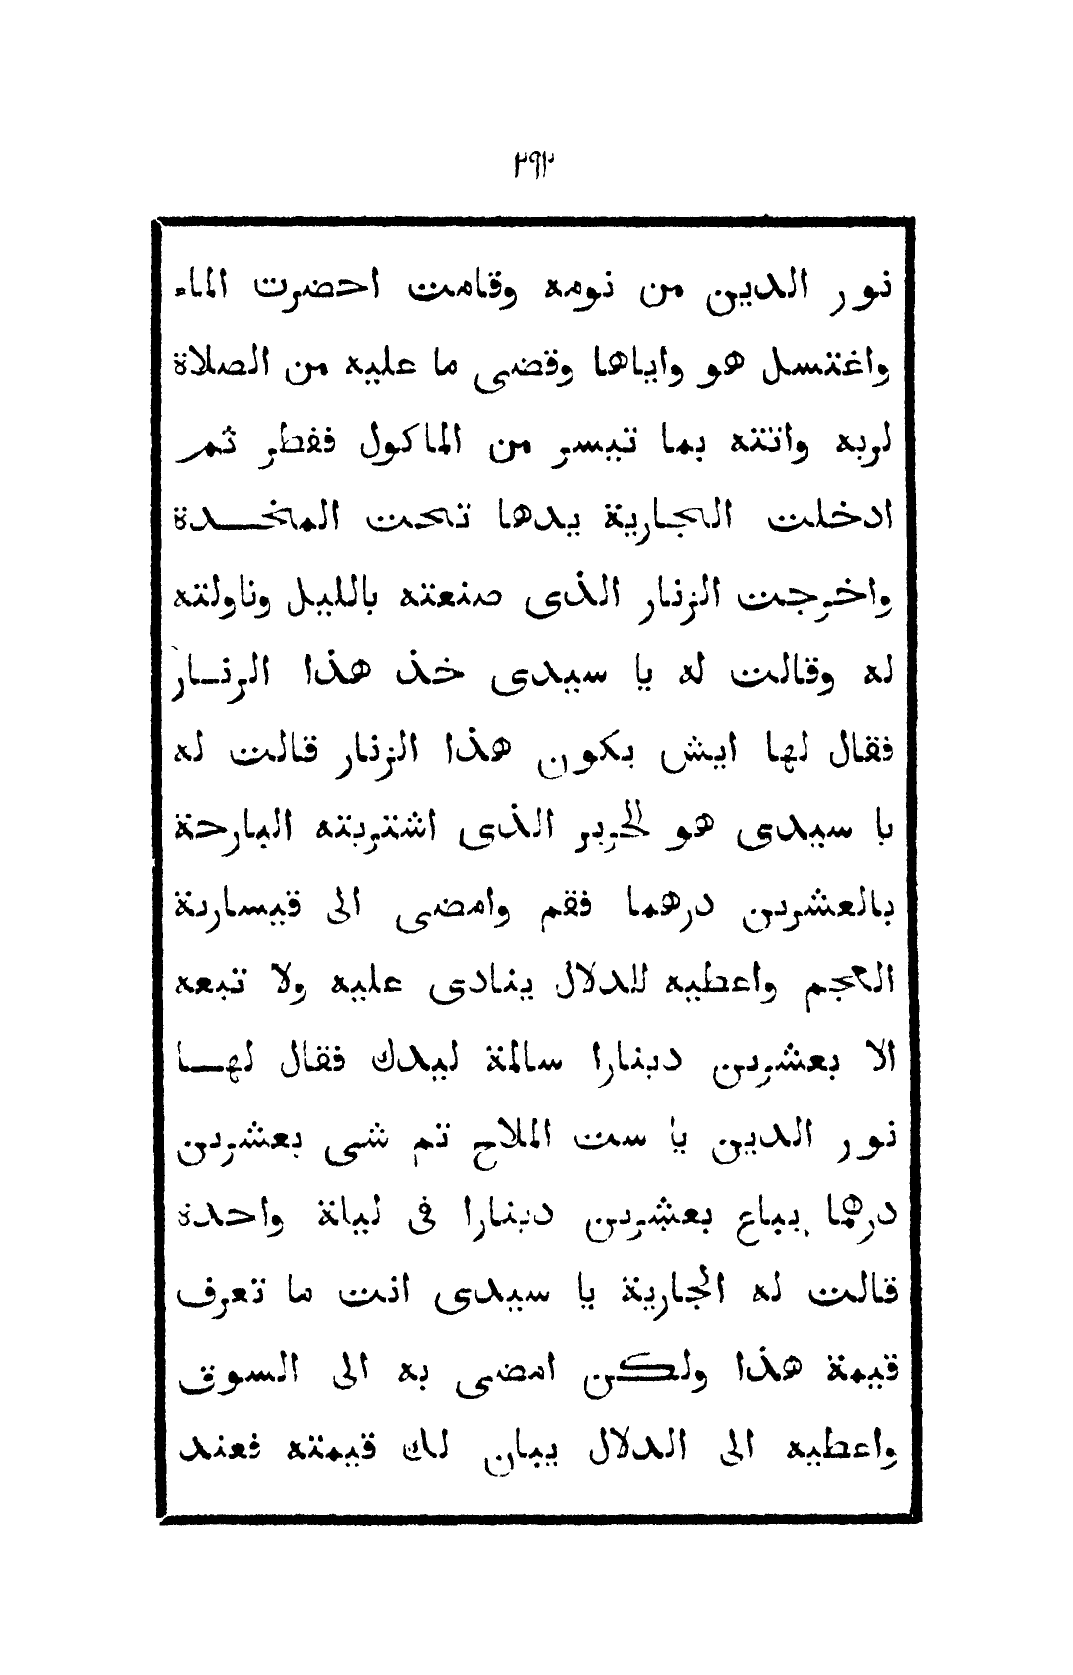 ٢٩٢
نور الدين من نومه وقامت احضرت الماء
واغتسل هو واياها وقضى ما عليه من الصلاة
لربه واتته بما تيسر من الماكول ففطر ثم
ادخلت الجارية يدها تحت المخــدة
واخرجت الزنار الذى صنعته بالليل وناولته
له وقالت له يا سيدى خذ هذا الزنــار
فقال لها ايش يكون هذا الزنار قالت له
يا سيدى هو الحرير الذى اشتريته البارحة
بالعشرين درهما فقم وامضى الى قيسارية
العجم واعطيه للدلال ينادى عليه ولا تبعه
الا بعشرين دينارا سالمة ليدك فقال لهــا
نور الدين يا ست الملاح تم شى بعشرين
درهما يباع بعشرين دينارا فى ليلة واحدة
قالت له الجارية يا سيدى انت ما تعرف
قيمة هذا ولكن امضى به الى السوق
واعطيه الى الدلال يبان لك قيمته فعند